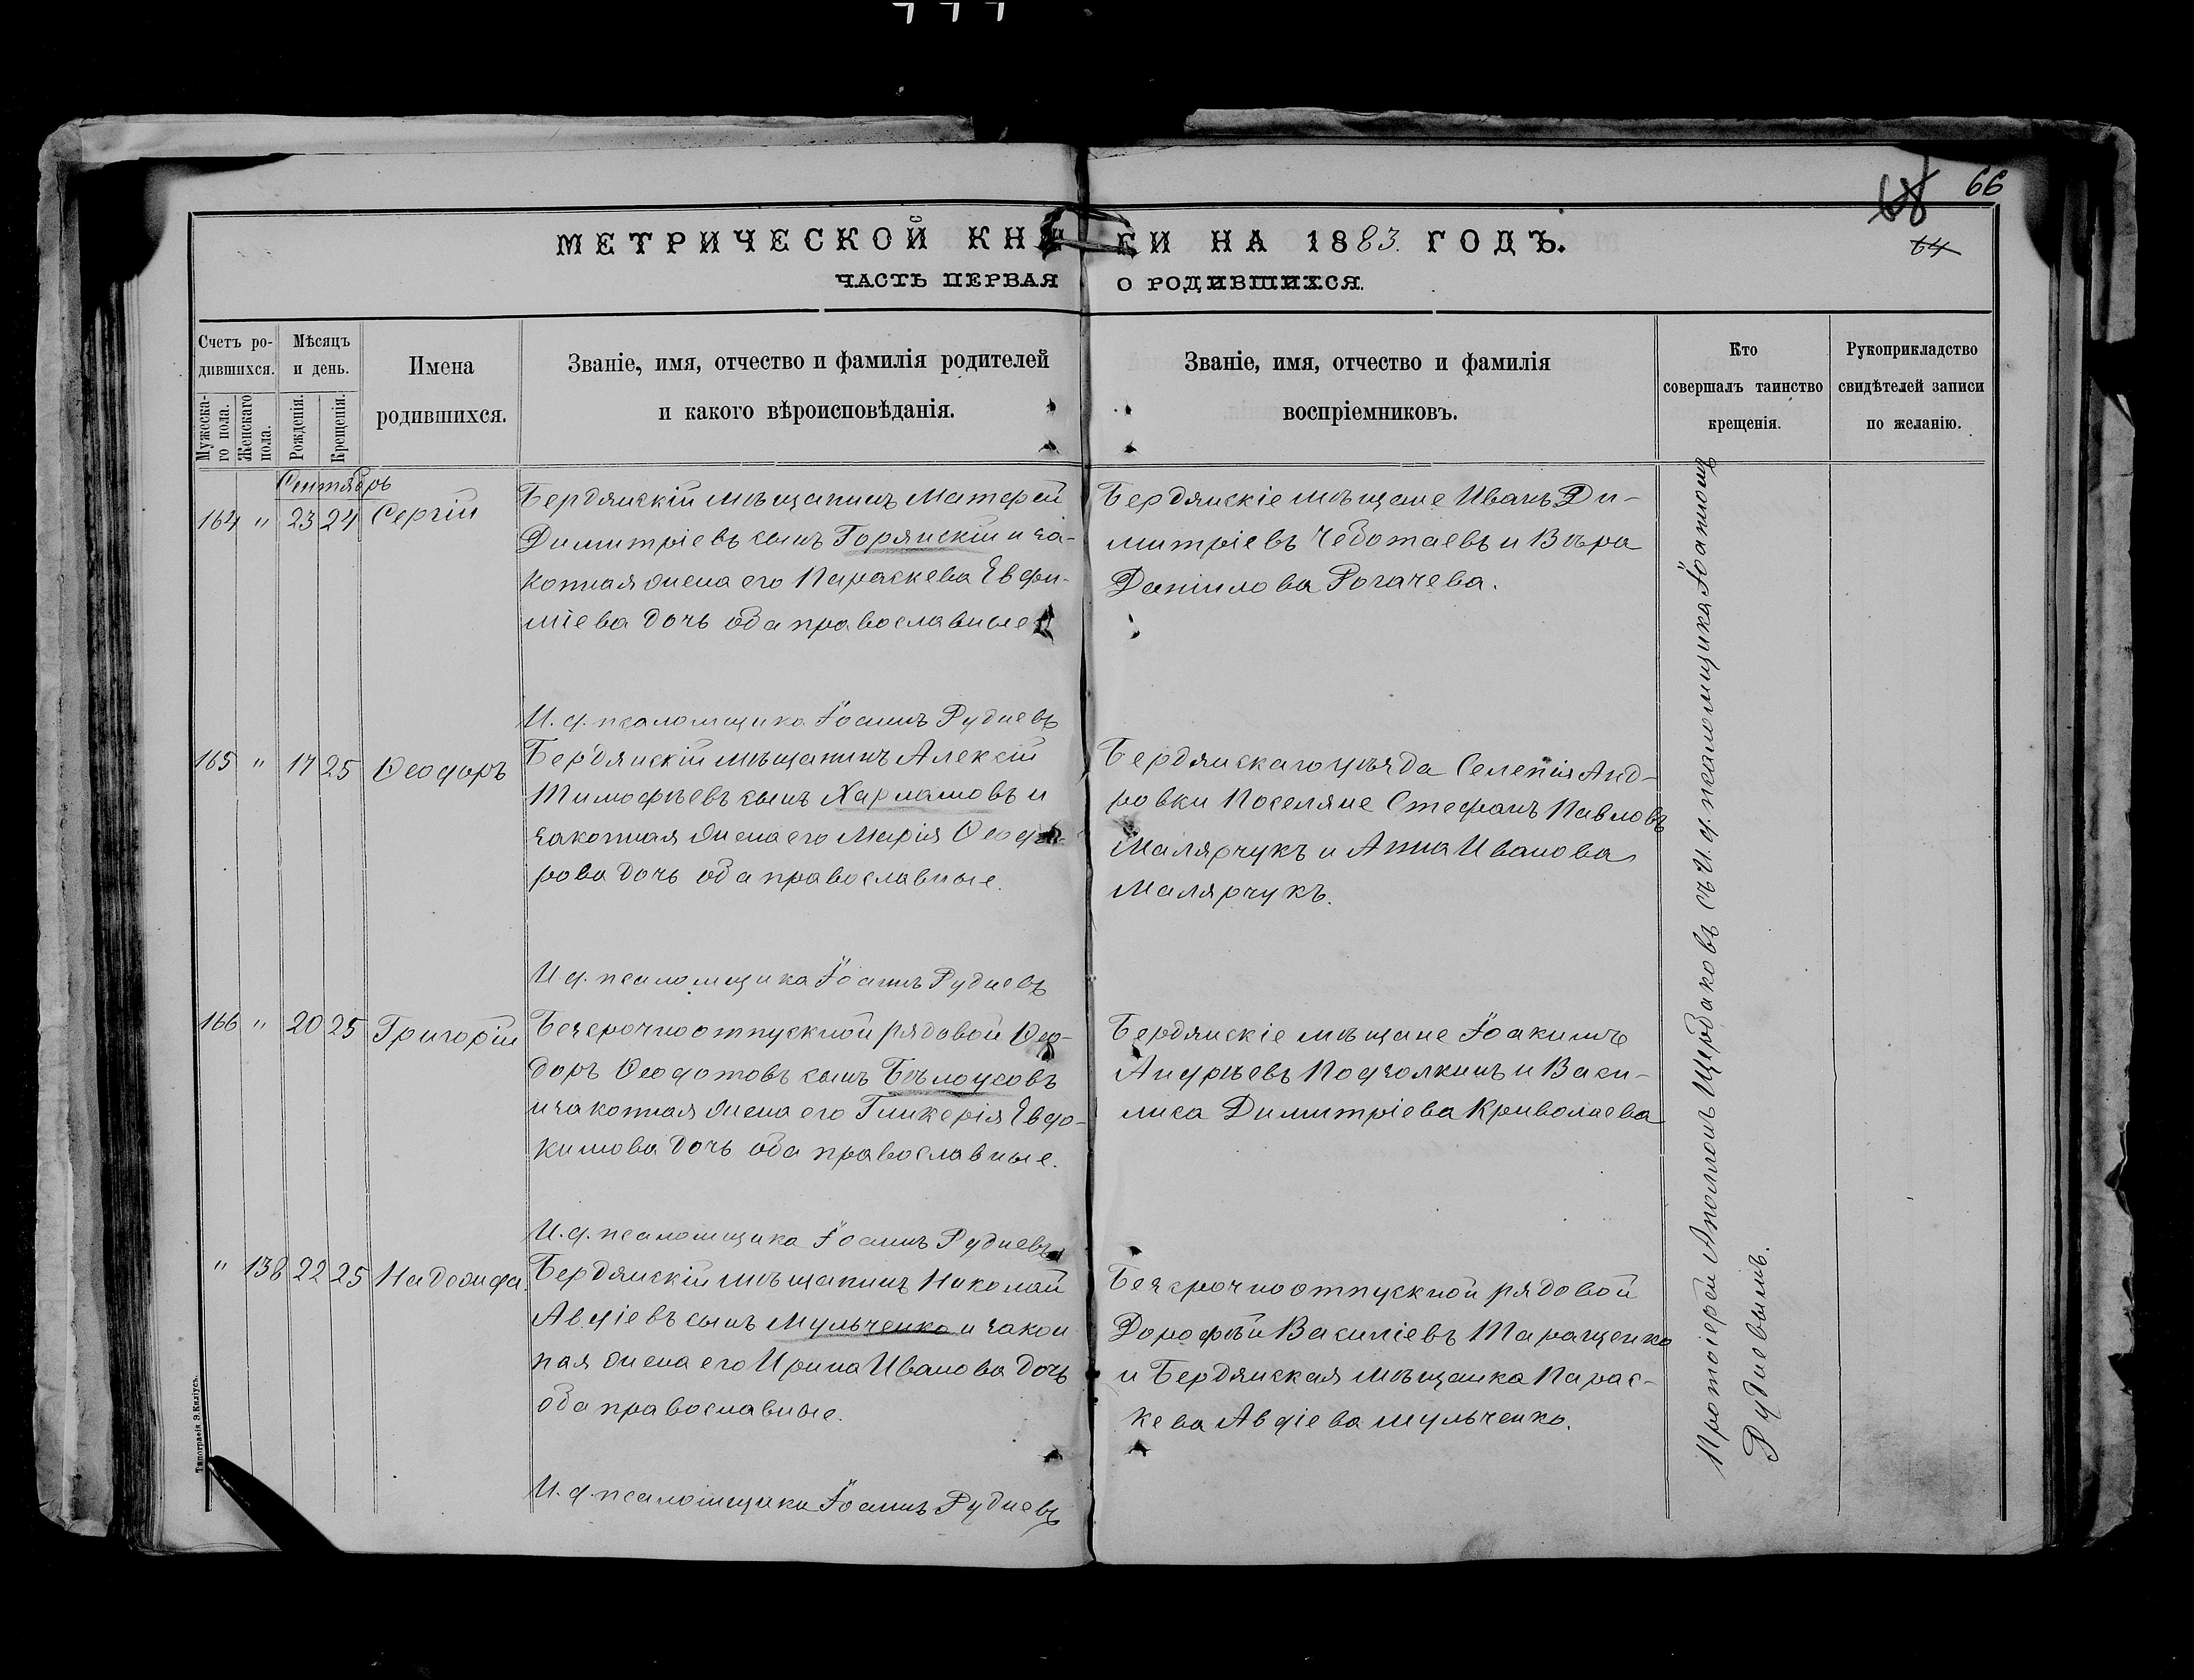 66
68
64
МЕТРИЧЕСКОЙ КНИГИ НА 1883. ГОДЪ.
ЧАСТЬ ПЕРВАЯ О РОДИВШИХСЯ.
Счетъ ро-
дившихся.
Мужеска-
го пола.
Женскаго
пола.
Мѣсяцъ
и день.
Рожденія.
Крещенія.
Имена
родившихся.
Званіе, имя, отчество и фамилія родителей
и какого вѣроисповѣданія.
Званіе, имя, отчество и фамилія
воспріемниковъ.
Кто
совершалъ таинство
крещенія.
Рукоприкладство
свидѣтелей записи
по желанію.
Сентябрь
164 " 23 24 Сергій
Бердянскій мѣщанинъ Матфей
Димитріевъ сынъ Горянскій и за-
конная жена его Параскева Евфи-
міева дочь оба православные
И. д. псаломщика Іоаннъ Рудневъ
Бердянскіе мѣщане Иванъ Ди-
митріевъ Чеботаевъ и Вѣра
Данилова Рогачева.
165 " 17 25 Ѳеодоръ
Бердянскій мѣщанинъ Алексій
Тимофѣевъ сынъ Харламовъ и
законная жена его Марія Ѳеодо-
рова дочь оба православные.
И д. псаломщика Іоаннъ Рудневъ
Бердянскаго уѣзда Селенія Анд-
ровки Поселяне Стефанъ Павловъ
Малярчукъ и Анна Иванова
Малярчукъ.
166 " 20 25 Григорій
Безсрочноотпускной рядовой Ѳео-
доръ Ѳеодотовъ сынъ Бѣлоусовъ
и законная жена его Гликерія Евдо-
кимова дочь оба православные.
И. д. псаломщика Іоаннъ Рудневъ
Бердянскіе мѣщане Іоакимъ
Андрѣевъ Подзолкинъ и Васи-
лиса Димитріева Криволаева
" 138 22 25 Надежда.
Бердянскій мѣщанинъ Николай
Авдіевъ сынъ Мульченко и закон
ная жена его Ирина Иванова дочь
оба православные.
И. д. псаломщика Іоаннъ Рудневъ
Безсрочноотпускной рядовой
Дорофѣй Василіевъ Таращенко
и Бердянская мѣщанка Парас-
кева Авдіева Мульченко.
Протоіерей Аполлонъ Щербаковъ съ И. д. псаломщика Іоанномъ
Рудневымъ.
Типографія Э. Килліусъ.